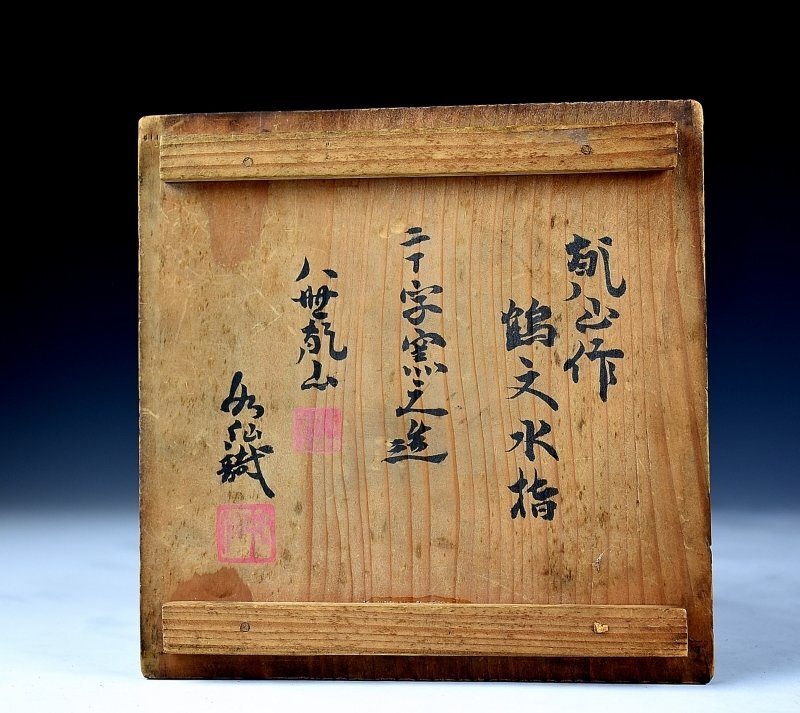 乾山作
鶴文水指
二十字窯之造
八世乾山
仙識